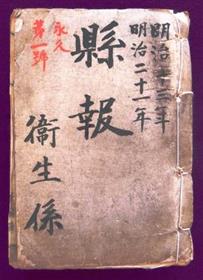 明治二十三年
明治二十一年
縣報
衞生係
永久
第一號